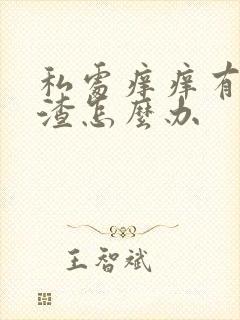 私處痒痒有
渣怎麼办
王智斌